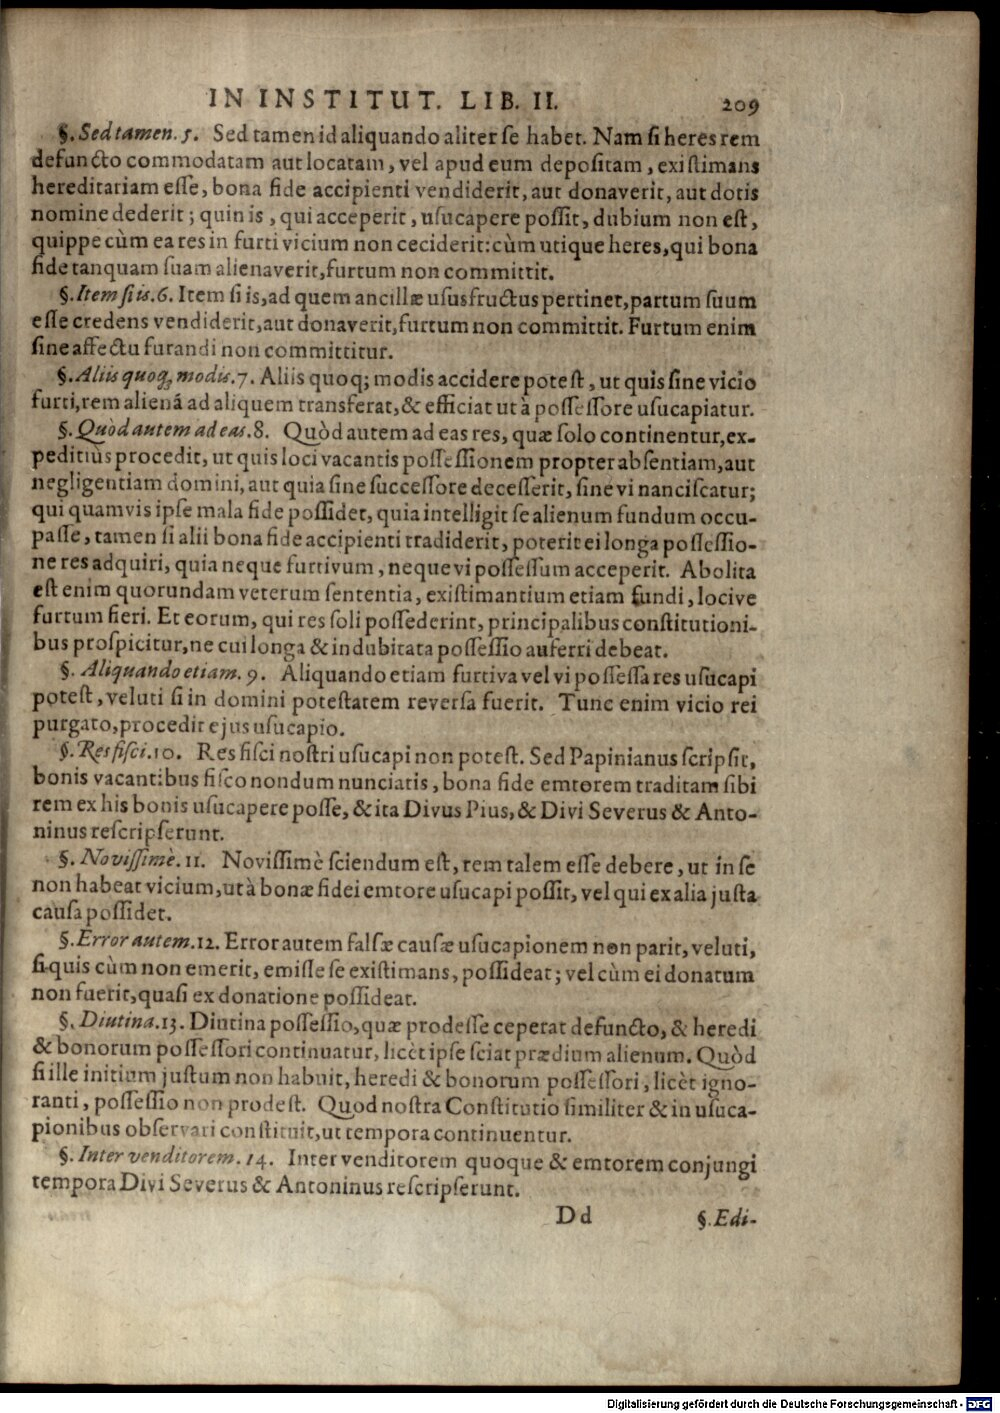 IN INSTITUT. LIB. II. 209
§. Sed tamen. 5. Sed tamen id aliquando aliter se habet. Nam si heres rem
defuncto commodatam aut locatam, vel apud eum depositam, existimans
hereditariam esse, bona fide accipienti vendiderit, aut donaverit, aut dotis
nomine dederit; quin is, qui acceperit, usucapere possit, dubium non est,
quippe cùm ea res in furti vicium non ceciderit: cùm utique heres, qui bona
fide tanquam suam alienaverit, furtum non committit.
§. Item si is. 6. Item si is, ad quem ancillæ ususfructus pertinet, partum suum
esse credens vendiderit, aut donaverit, furtum non committit. Furtum enim
sine affectu furandi non committitur.
§. Aliis quoq; modis. 7. Aliis quoq; modis accidere potest, ut quis sine vicio
furti, rem alienā ad aliquem transferat, & efficiat ut à possessore usucapiatur.
§. Quòd autem ad eas. 8. Quòd autem ad eas res, quæ solo continentur, ex-
peditiùs procedit, ut quis loci vacantis possessionem propter absentiam, aut
negligentiam domini, aut quia sine successore decesserit, sine vi nanciscatur;
qui quamvis ipse mala fide possidet, quia intelligit se alienum fundum occu-
passe, tamen si alii bona fide accipienti tradiderit, poterit ei longa possessio-
ne res adquiri, quia neque furtivum, neque vi possessum acceperit. Abolita
est enim quorundam veterum sententia, existimantium etiam fundi, locive
furtum fieri. Et eorum, qui res soli possederint, principalibus constitutioni-
bus prospicitur, ne cui longa & indubitata possessio auferri debeat.
§. Aliquando etiam. 9. Aliquando etiam furtiva vel vi possessa res usucapi
potest, veluti si in domini potestatem reversa fuerit. Tunc enim vicio rei
purgato, procedit ejus usucapio.
§. Res fisci. 10. Res fisci nostri usucapi non potest. Sed Papinianus scripsit,
bonis vacantibus fisco nondum nunciatis, bona fide emtorem traditam sibi
rem ex his bonis usucapere posse, & ita Divus Pius, & Divi Severus & Anto-
ninus rescripserunt.
§. Novissimè. 11. Novissimè sciendum est, rem talem esse debere, ut in se
non habeat vicium, ut à bonæ fidei emtore usucapi possit, vel qui ex alia justa
causa possidet.
§. Error autem. 12. Error autem falsæ causæ usucapionem non parit, veluti,
si quis cùm non emerit, emisse se existimans, possideat; vel cùm ei donatum
non fuerit, quasi ex donatione possideat.
§. Diutina. 13. Diutina possessio, quæ prodesse ceperat defuncto, & heredi
& bonorum possessori continuatur, licèt ipse sciat prædium alienum. Quòd
si ille initium justum non habuit, heredi & bonorum possessori, licèt igno-
ranti, possessio non prodest. Quod nostra Constitutio similiter & in usuca-
pionibus observari constituit, ut tempora continuentur.
§. Inter venditorem. 14. Inter venditorem quoque & emtorem conjungi
tempora Divi Severus & Antoninus rescripserunt.
Dd §. Edi-
Digitalisierung gefördert durch die Deutsche Forschungsgemeinschaft - DFG